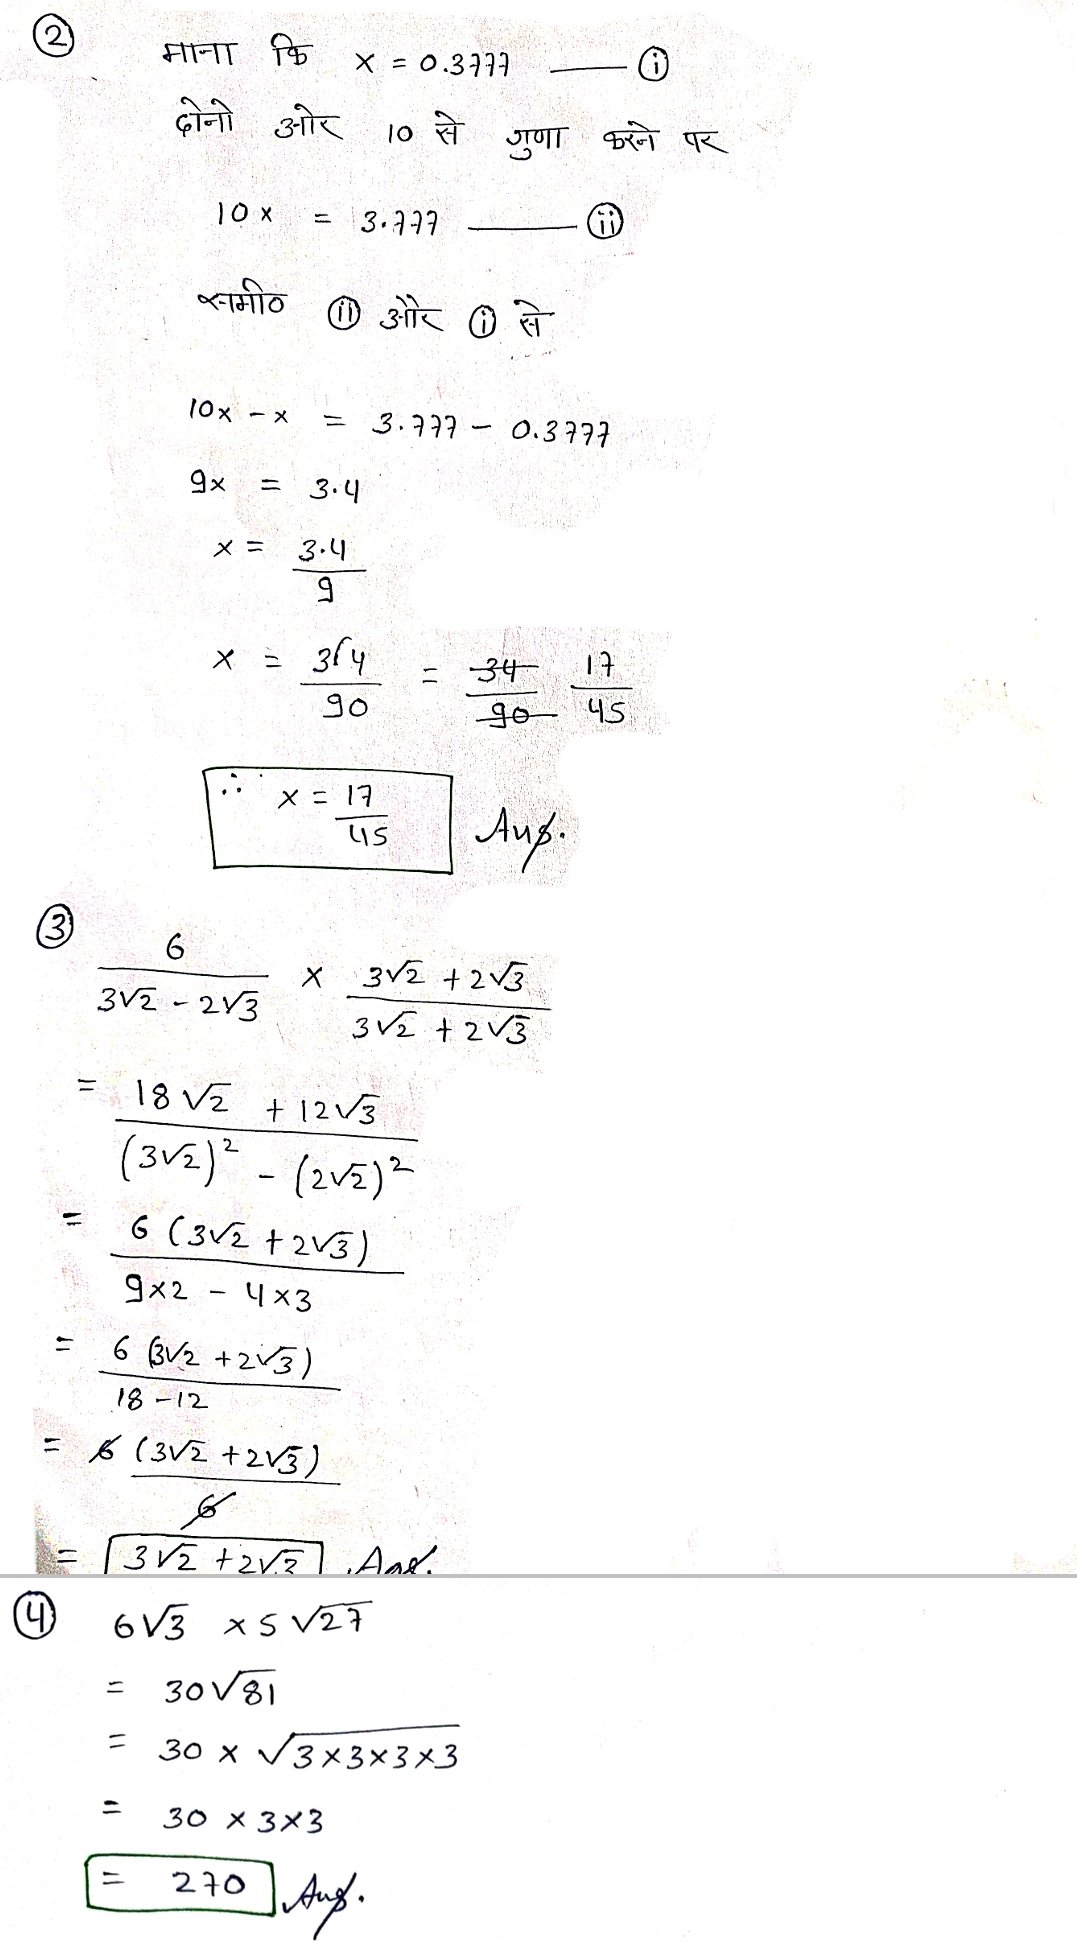 ② माना कि x = 0.3777 —— ⓘ
दोनो ओर 10 से गुणा करने पर
10x = 3.777 —— ⓘⓘ
समी० ⓘⓘ और ⓘ से
10x - x = 3.777 - 0.3777
9x = 3.4
x = 3.4/9
x = 34/90 = 34/90 17/45
∴ x = 17/45 Ans.
③ 6/(3√2 - 2√3) × (3√2 + 2√3)/(3√2 + 2√3)
= (18√2 + 12√3)/((3√2)² - (2√2)²)
= 6(3√2 + 2√3)/(9×2 - 4×3)
= 6(3√2 + 2√3)/(18-12)
= 6(3√2 + 2√3)/6
= 3√2 + 2√3 Ans.
④ 6√3 × 5√27
= 30√81
= 30 × √3×3×3×3
= 30 × 3×3
= 270 Ans.